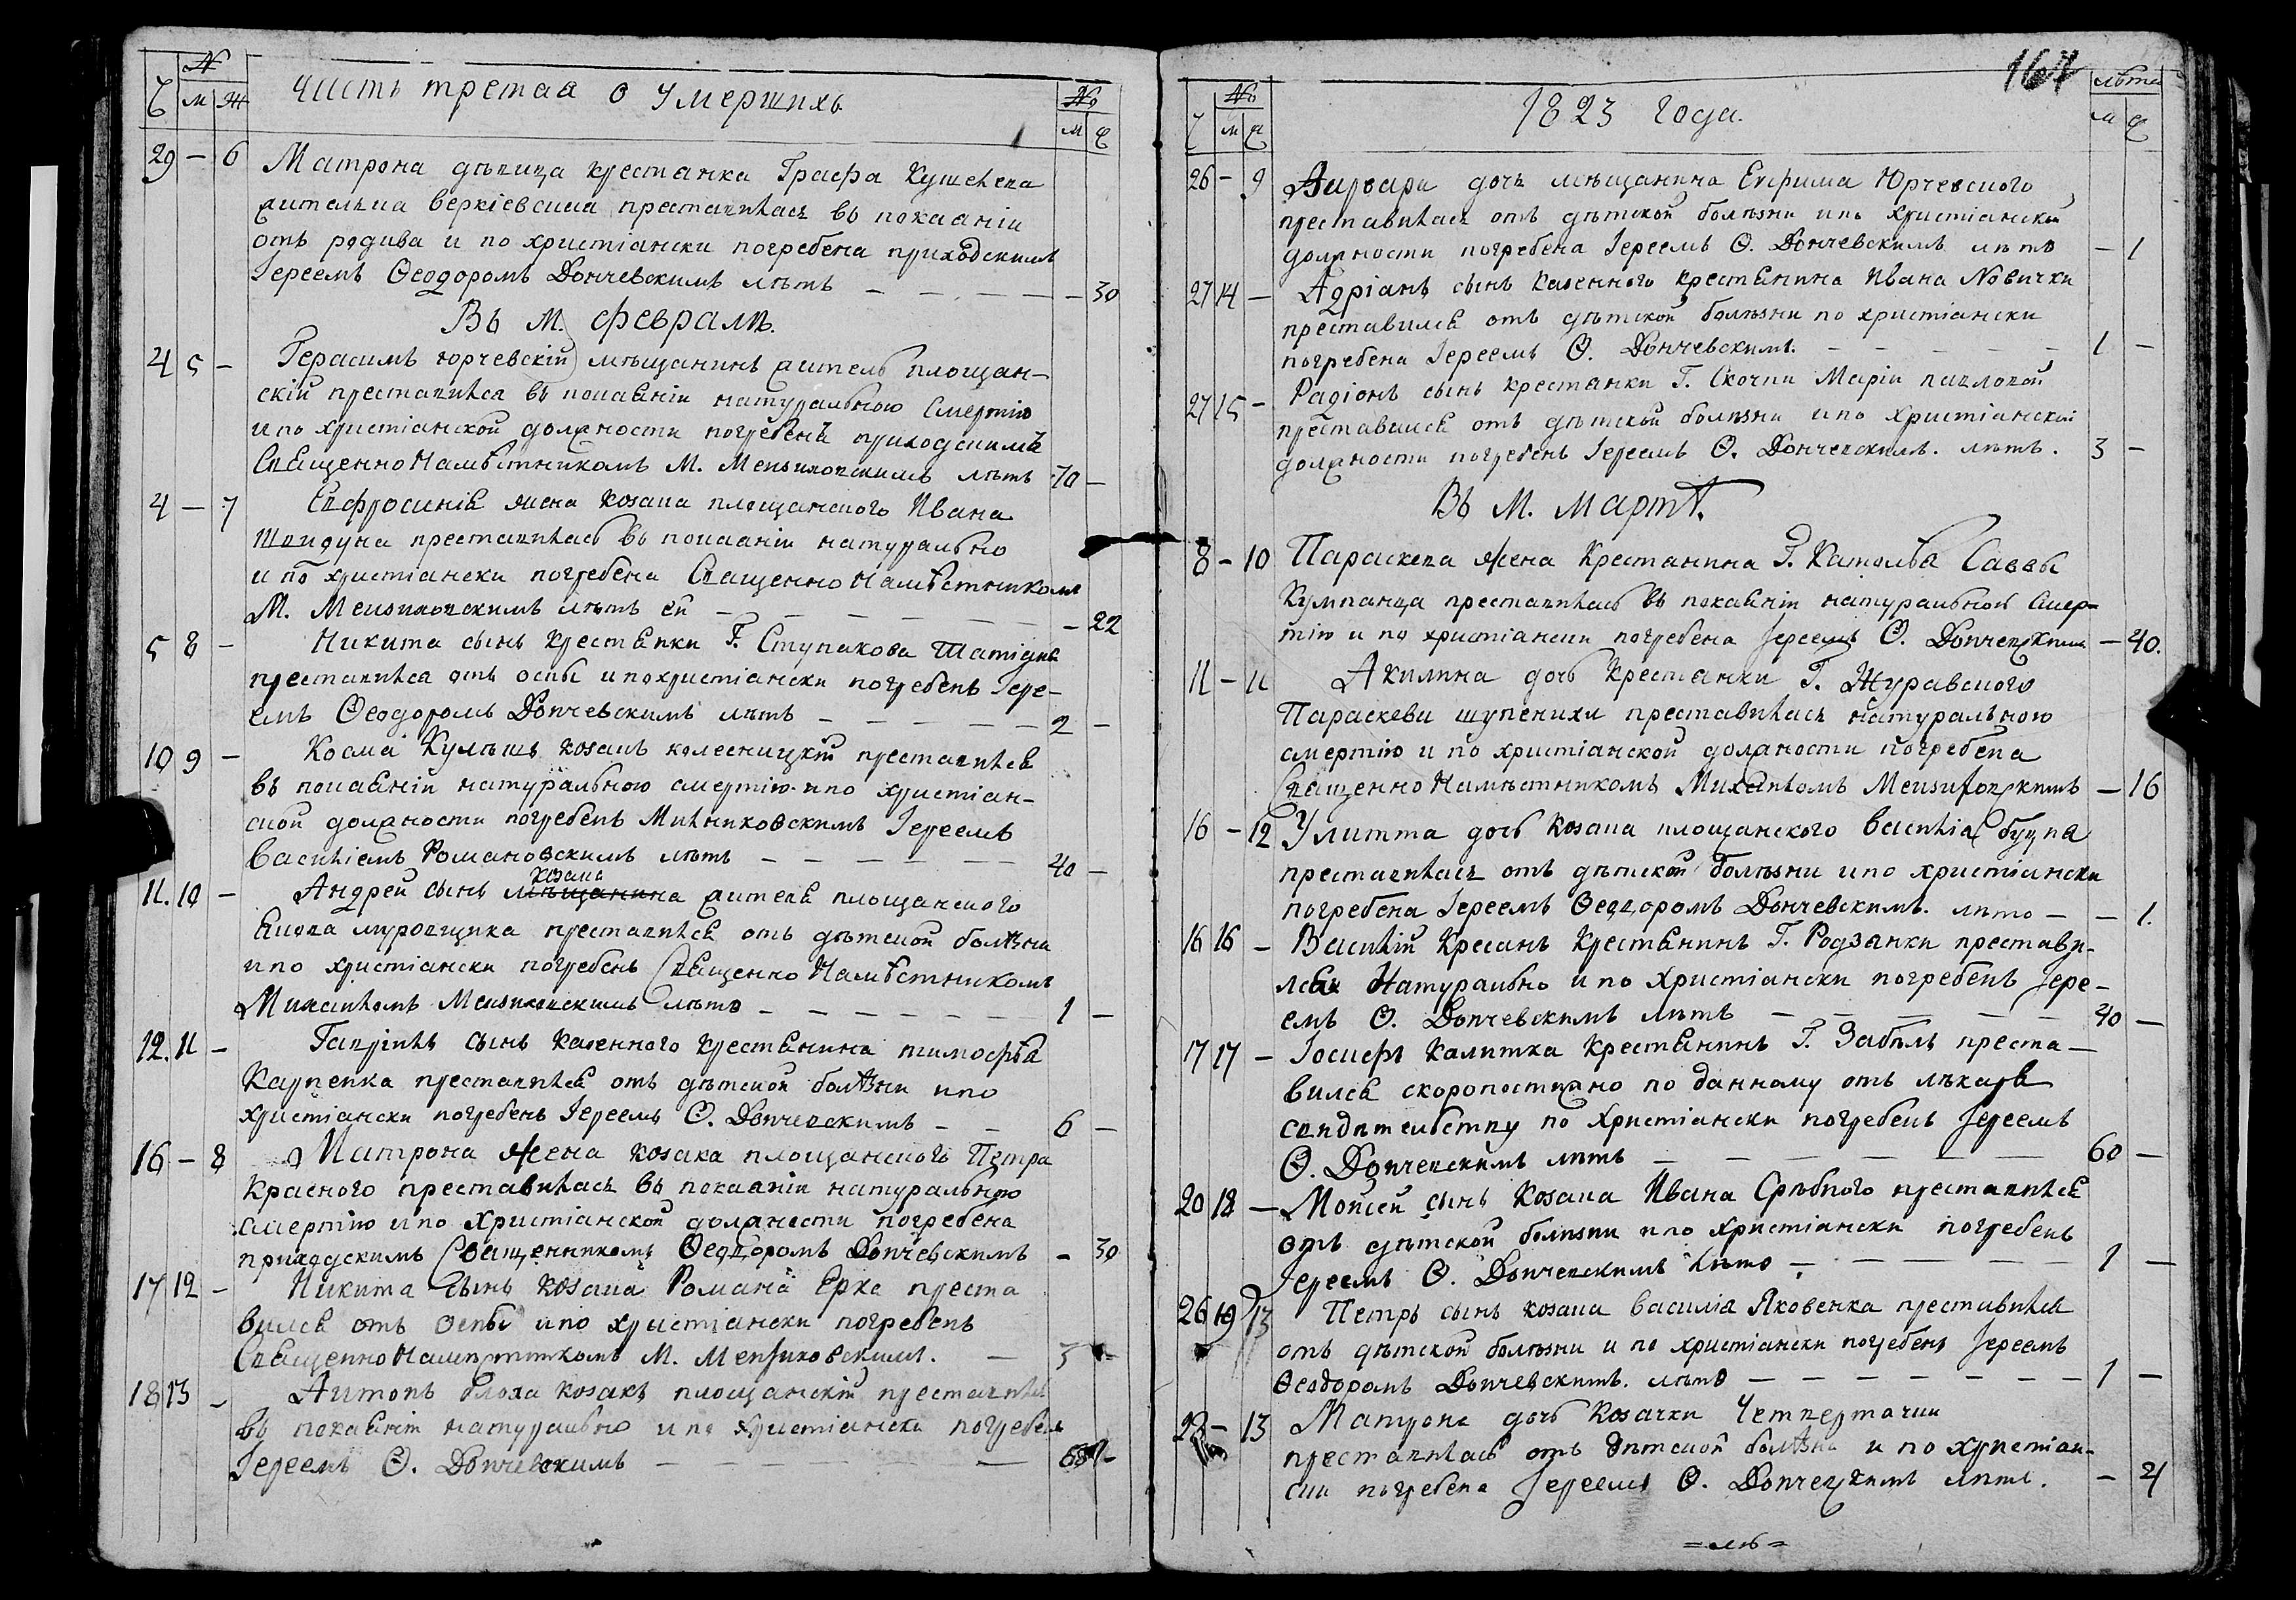 Часть третая о умершихъ
№
м ж
№
м
29 – 6 Матрона девица крестанка Графа Кушелева
жителка веркіевская преставилась въ покааніи
отъ родива и по христіански погребена приходскимъ
Іереемъ Ѳеодоромъ Дончевскимъ летъ – – – – 30
Въ М. февралѣ.
4 5 – Герасимъ Юрчевскій мѣщанинъ житель площан-
скій преставился въ покаяніи натуральною смертію
и по христіанской должности погребенъ приходскимъ
СвященноНамѣстникомъ М. лѣтъ 70 –
4 – 7 Евфросиніа жена козака площанского Ивана
преставилась въ покааніи натурально
и по христіански погребена СвященноНамѣстникомъ
М. лѣтъ ей – – – 22
5 8 – Никита сынъ крестянки Г. Ступакова
преставился отъ оспы и по христіански погребенъ Іере-
емъ Ѳеодоромъ Дончевскимъ лѣтъ – – – 2 –
10 9 – Косма Кулѣшъ козакъ колесницкій преставился
въ покаяніи натуральною смертію и по христіан-
ской должности погребенъ Мильниковскимъ Іереемъ
Василіемъ Романовскимъ лѣтъ – – – 40 –
козака
11. 10 – Андрей сынъ мѣщанина жителя площанского
преставился отъ дѣтской болѣзни
и по христіански погребенъ СвященноНамѣстникомъ
Михаиломъ лѣто – – – 1 –
12. 11 – Гавріилъ сынъ казенного крестянина тимофѣа
Карпенка преставился отъ дѣтской болѣзни и по
христіански погребенъ Іереемъ Ѳ. Дончевскимъ – – 6 –
16 – 8 Матрона жена козака площанского Петра
Красного преставилась въ покааніи натуральною
смертію и по христіанской должности погребена
приходскимъ Священникомъ Ѳеодоромъ Дончевскимъ – 30
17 12 – Никита сынъ козака Романа Ерка преста
вился отъ оспы и по христіански погребенъ
СвященноНамѣстникомъ М. – 3 –
18 13 – Антонъ козакъ площанскій преставился
въ покаяніи натурально и по христіански погребенъ
Іереемъ Ѳ. Дончевскимъ – – –
167
1823 года.
№
м
лѣта
м
26 – 9 дочь мѣщанина Ефима Юрчевского
преставилась отъ дѣтской болѣзни и по христіанской
должности погребена Іереемъ Ѳ. Дончевскимъ лѣто – 1
27 14 – Адріанъ сынъ казенного крестянина Ивана Новички
преставился отъ дѣтской болѣзни по христіански
погребена Іереемъ Ѳ. Дончевскимъ. – – – 1 –
27 15 – Радіонъ сынъ крестанки Г. Скочпи Маріи павловой
преставился отъ дѣтской болѣзни и по христіанской
должности погребенъ Іереемъ Ѳ. Дончевскимъ. лѣтъ. 3 –
Въ М. Мартѣ.
8 – 10 Параскева жена Крестанина Г. Саввы
Кумпанца преставилась въ покаяніи натуральной смер-
тію и по христіански погребена Іереемъ Ѳ. Дончевскимъ – 40.
11 – 11 Акилина дочь крестянки Г. Журавского
Параскеви шупенихи преставилась натуральною
смертію и по христіанской должности погребена
СвященноНамѣстникомъ Михаиломъ – 16
16 – 12 Улитта дочь козака площанского василіа
преставилась отъ дѣтской болѣзни и по христіански
погребена Іереемъ Ѳеодоромъ Дончевскимъ. лѣто – – 1.
16 16 – Василій Кресанъ Крестянинъ Г. Родзянки престави-
лся Натурально и по христіански погребенъ Іере-
емъ Ѳ. Дончевскимъ лѣтъ – – – 40 –
17 17 – Іосифъ Калитка крестянинъ Г. Забѣлы преста–
вился скоропостижно по данному отъ лѣкаря
свидѣтельству по христіански погребенъ Іереемъ
Ѳ. Дончевскимъ лѣтъ – – – 60 –
20 18 – Мойсей сынъ козака Ивана Срѣбного преставился
отъ дѣтской болѣзни и по христіански погребенъ
Іереемъ Ѳ. Дончевскимъ лѣто – – – 1 –
26 19 13 Петръ сынъ козака василія Яковенка преставился
отъ дѣтской болѣзни и по христіански погребенъ Іереемъ
Ѳеодоромъ Дончевскимъ. лѣто – – – 1 –
– 13 Матрона дочь козачки
преставилась отъ дѣтской болѣзни и по христіан-
ски погребена Іереемъ Ѳ. Дончевскимъ лѣтъ. –